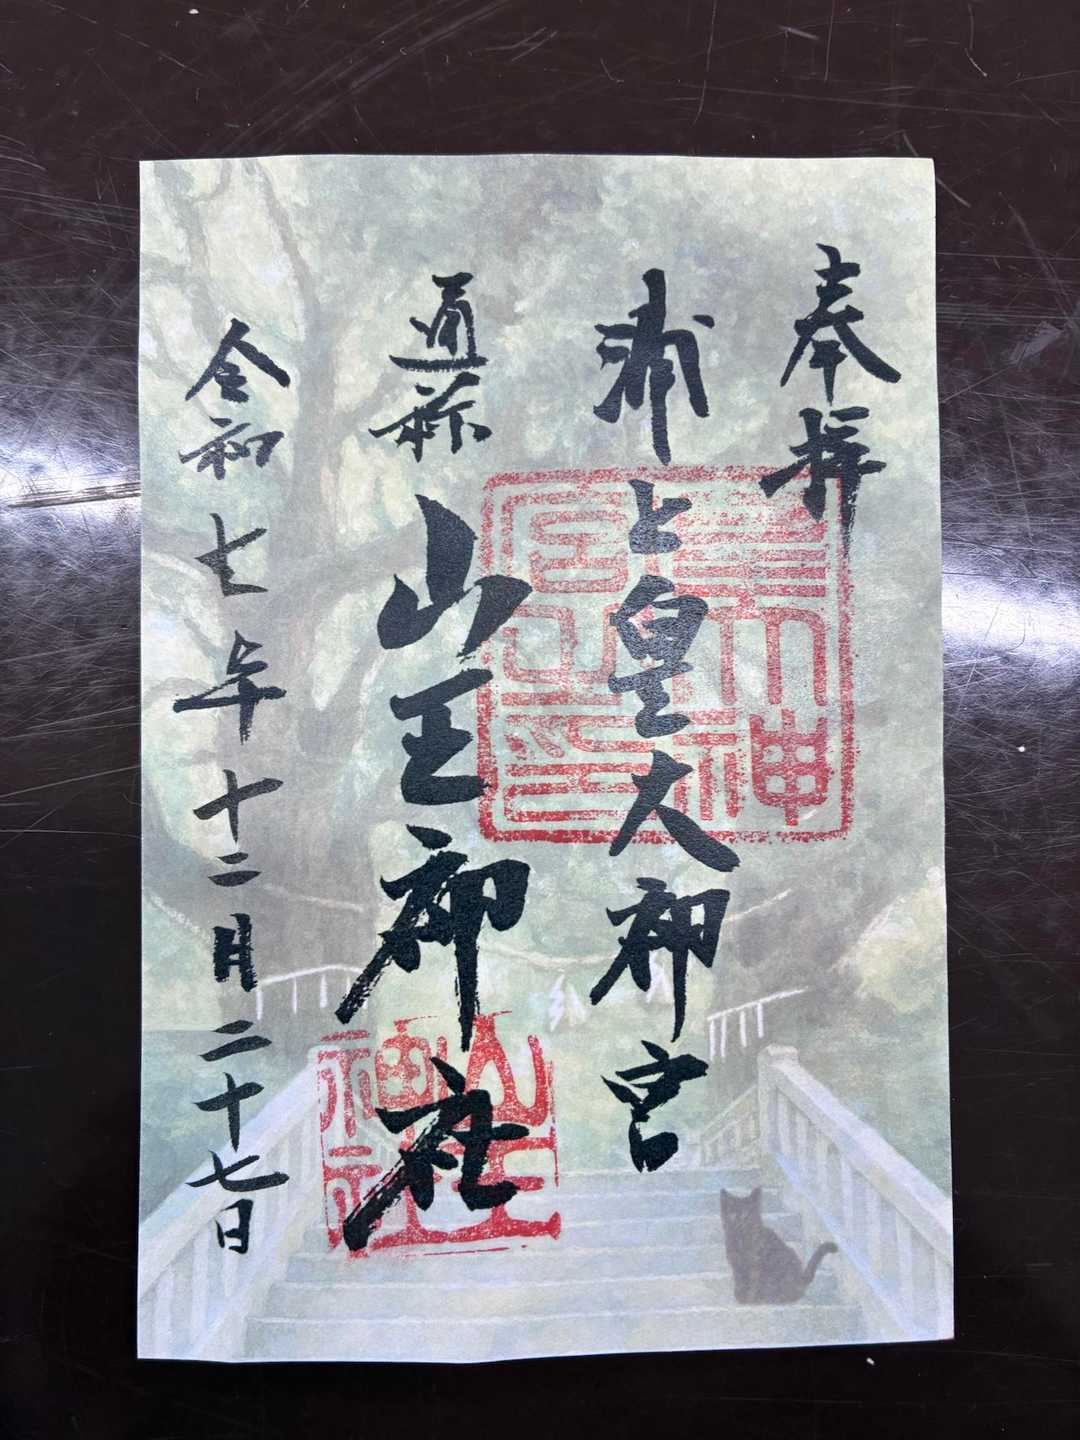 奉拝
浦上皇大神宮
通称
山王神社
令和七年十二月二十七日
山王
神社